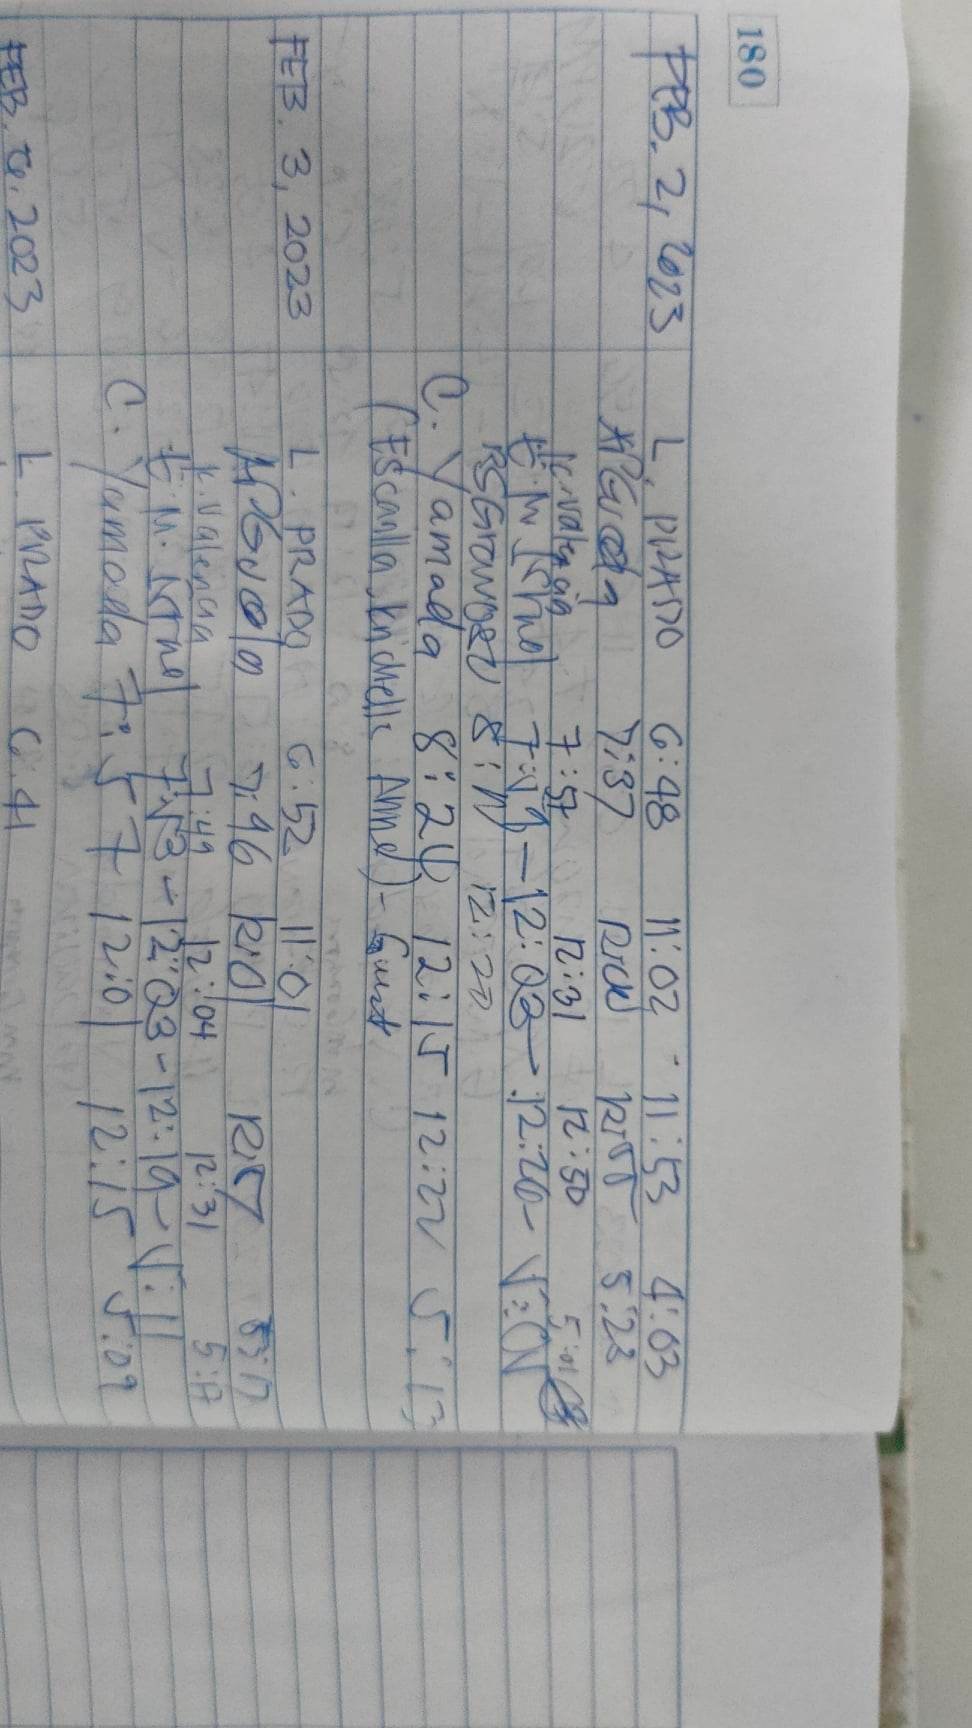 180
FEB. 2, 2023 L. PRADO 6:48 11:02 - 11:53 4:03
7:37 5:23
K. Valencia 7:57 12:31 12:50 5:01
E. M. 7:19 - 12:03 - 12:20 -
RSGranger 8:11 12:20
C. Yamada 8:24 12:15 12:22 5:13
(Escanilla, Krichelle Anne) - Guest
FEB. 3, 2023 L. PRADO 6:52 11:01
7:46 12:01 5:17
K. Valencia 7:49 12:04 12:31 5:17
E. M. 7:53 - 12:03 - 12:19 - 5:11
C. Yamada 7:57 12:01 12:15 5:09
FEB. 6, 2023 L. PRADO 6:41